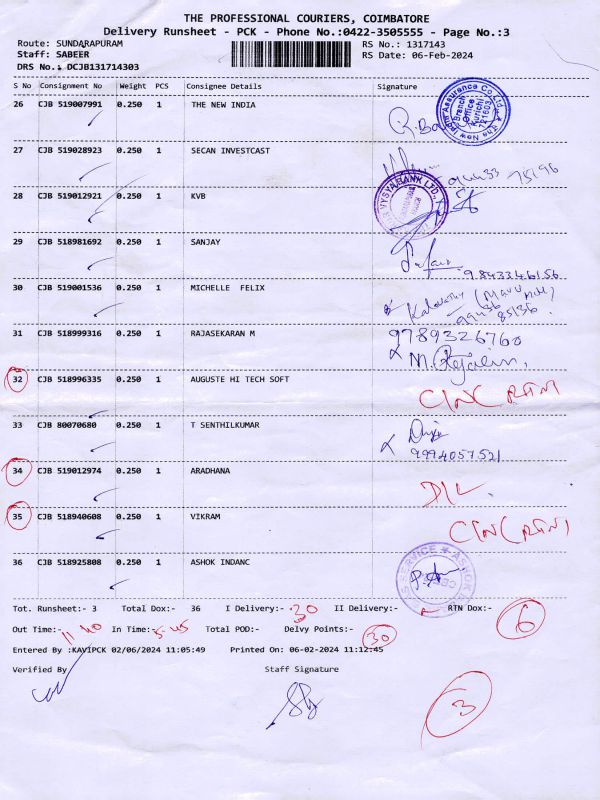 THE PROFESSIONAL COURIERS, COIMBATORE
Delivery Runsheet - PCK - Phone No.:0422-3505555 - Page No.:3
Route: SUNDARAPURAM RS No.: 1317143
Staff: SABEER RS Date: 06-Feb-2024
DRS No.: DCJB131714303
S No Consignment No Weight PCS Consignee Details Signature
26 CJB 519007991 0.250 1 THE NEW INDIA
The New India Assurance Co. Ltd. Branch Office Kurichi 721603
27 CJB 519028923 0.250 1 SECAN INVESTCAST
94433 75196
28 CJB 519012921 0.250 1 KVB
VYSYA BANK LTD.
29 CJB 518981692 0.250 1 SANJAY
9843346156
30 CJB 519001536 0.250 1 MICHELLE FELIX
99436 85136
31 CJB 518999316 0.250 1 RAJASEKARAN M 9789326760
32 CJB 518996335 0.250 1 AUGUSTE HI TECH SOFT
CINC RTN
33 CJB 80070680 0.250 1 T SENTHILKUMAR
9994057521
34 CJB 519012974 0.250 1 ARADHANA
D/L
35 CJB 518940608 0.250 1 VIKRAM
CINC RTN
36 CJB 518925808 0.250 1 ASHOK INDANC
SERVICE ★ ASHOK
Tot. Runsheet:- 3 Total Dox:- 36 I Delivery:- 30 II Delivery:- RTN Dox:- 6
Out Time:- 11.40 In Time:- 5.45 Total POD:- Delvy Points:- 30
Entered By :KAVIPCK 02/06/2024 11:05:49 Printed On: 06-02-2024 11:12:45
Verified By Staff Signature
3